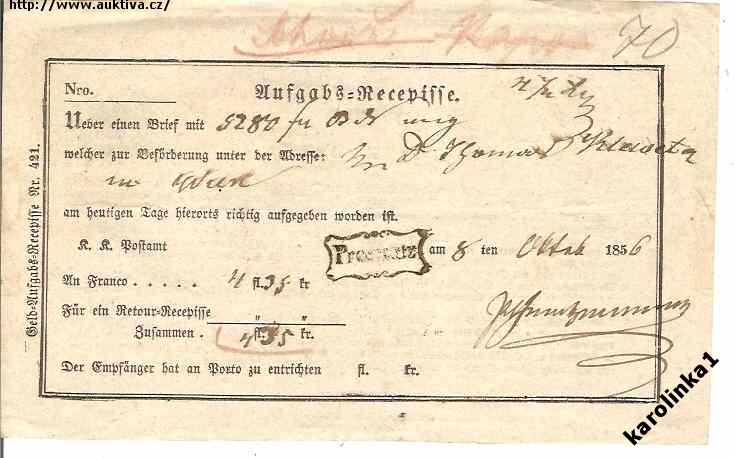 http://www.auktiva.cz/
70
Nro.
Aufgabs=Recepisse.
Ueber einen Brief mit 5280 fl
welcher zur Beförderung unter der Adresse: Dr Thomas
in Wien
am heutigen Tage hierorts richtig aufgegeben worden ist.
K. K. Postamt Prossnitz am 8 ten Oktob 1856
An Franco . . . . . 4 fl. 35 kr
Für ein Retour-Recepisse " "
Zusammen . 4 fl. 35 kr.
Der Empfänger hat an Porto zu entrichten fl. kr.
Geld=Aufgabs=Recepisse Nr. 421.
karolinka1